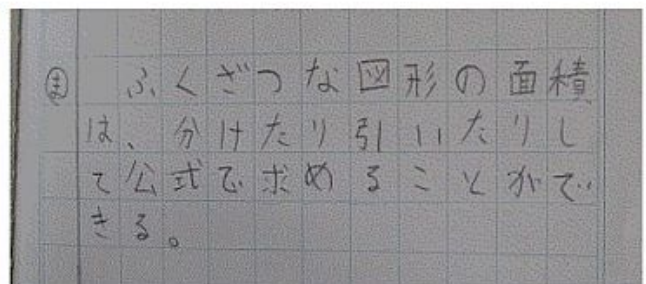 ㋮ ふくざつな図形の面積
は、分けたり引いたりし
て公式で求めることがで
きる。